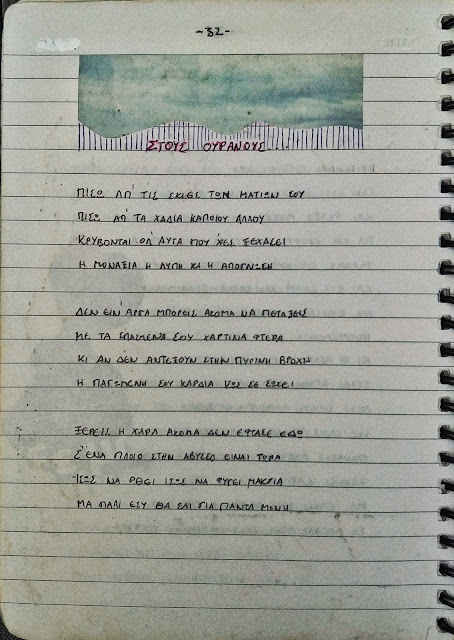 -32-
ΣΤΟΥΣ ΟΥΡΑΝΟΥΣ...
ΠΙΣΩ ΑΠ' ΤΙΣ ΣΚΙΕΣ ΤΩΝ ΜΑΤΙΩΝ ΣΟΥ
ΠΙΣΩ ΑΠ' ΤΑ ΧΑΔΙΑ ΚΑΠΟΙΟΥ ΑΛΛΟΥ
ΚΡΥΒΟΝΤΑΙ ΟΛ' ΑΥΤΑ ΠΟΥ 'ΧΕΙΣ ΞΕΧΑΣΕΙ
Η ΜΟΝΑΞΙΑ Η ΛΥΠΗ ΚΙ Η ΑΠΟΓΝΩΣΗ
ΔΕΝ ΕΙΝ' ΑΡΓΑ ΜΠΟΡΕΙΣ ΑΚΟΜΑ ΝΑ ΠΕΤΑΞΕΙΣ
ΜΕ ΤΑ ΣΠΑΣΜΕΝΑ ΣΟΥ ΧΑΡΤΙΝΑ ΦΤΕΡΑ
ΚΙ ΑΝ ΔΕΝ ΑΝΤΕΞΟΥΝ ΣΤΗΝ ΠΥΡΙΝΗ ΒΡΟΧΗ
Η ΠΑΓΩΜΕΝΗ ΣΟΥ ΚΑΡΔΙΑ ΙΣΩΣ ΣΕ ΣΩΣΕΙ
ΞΕΡΕΙΣ Η ΧΑΡΑ ΑΚΟΜΑ ΔΕΝ ΕΦΤΑΣΕ ΕΔΩ
Σ' ΕΝΑ ΠΛΟΙΟ ΣΤΗΝ ΑΒΥΣΣΟ ΕΙΝΑΙ ΤΩΡΑ
ΙΣΩΣ ΝΑ ΡΘΕΙ ΙΣΩΣ ΝΑ ΦΥΓΕΙ ΜΑΚΡΙΑ
ΜΑ ΠΑΛΙ ΕΣΥ ΘΑ ΣΑΙ ΓΙΑ ΠΑΝΤΑ ΜΟΝΗ